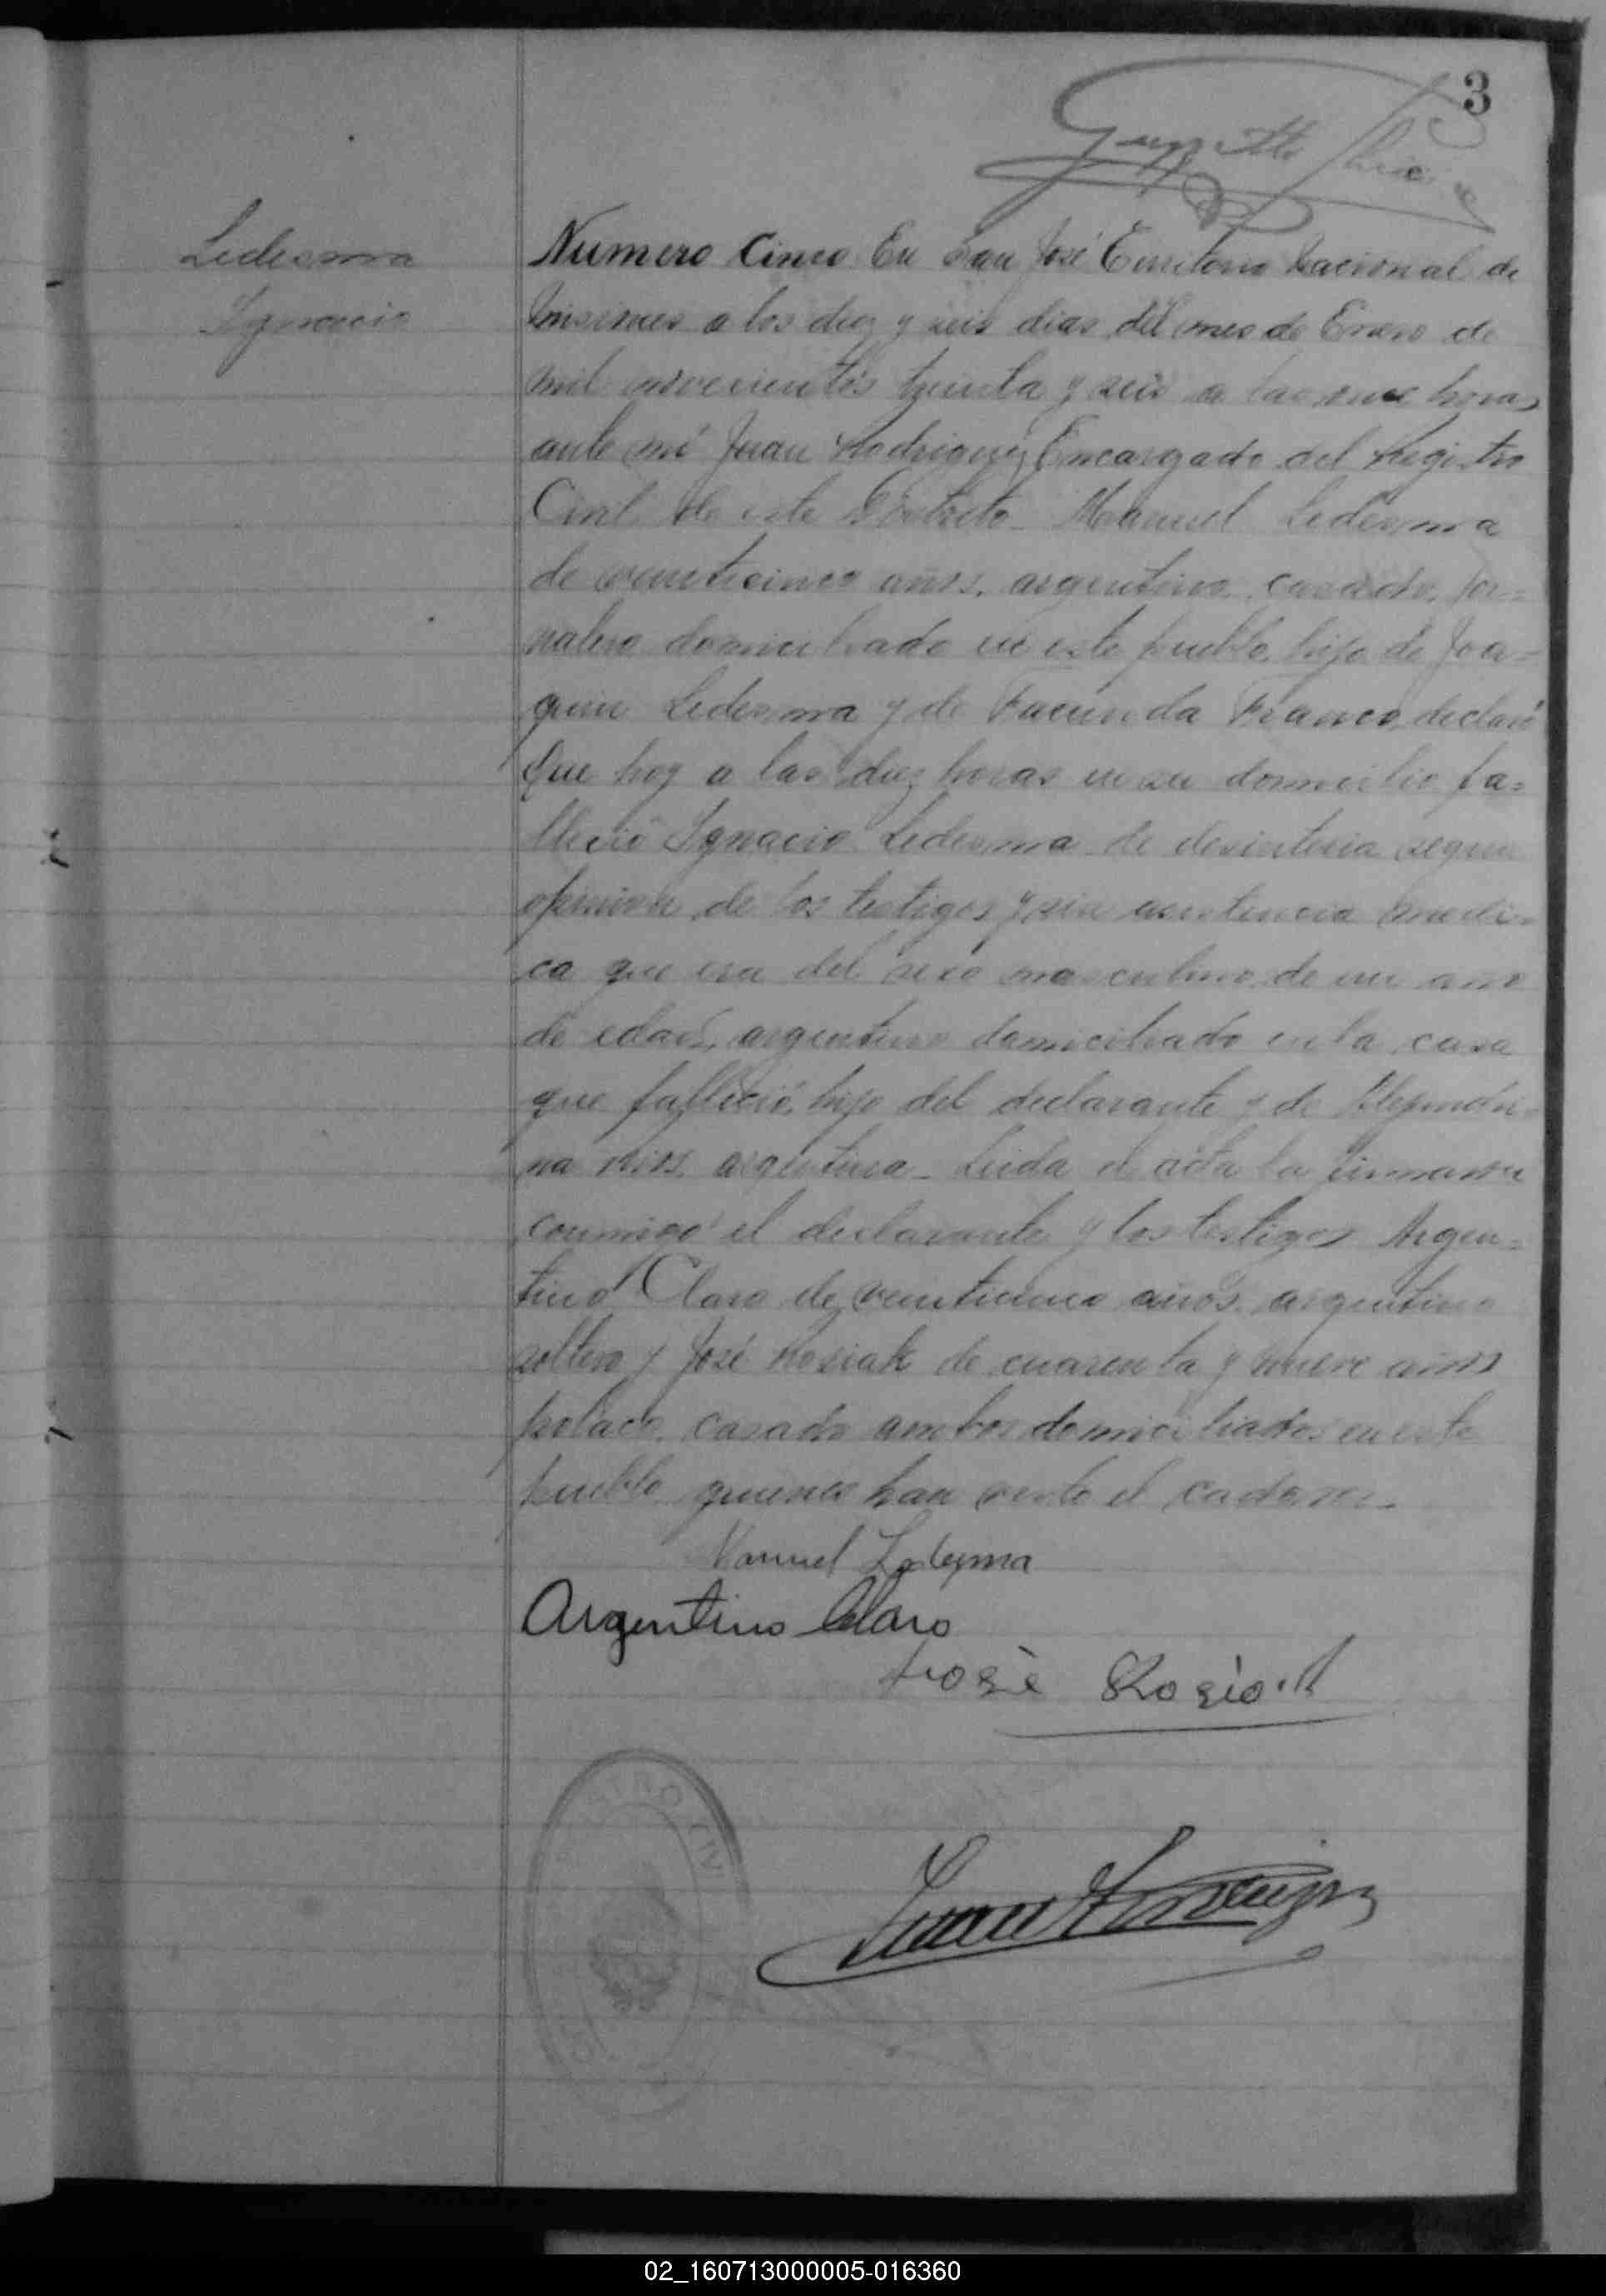 3
Ledesma
Ignacio
Numero Cinco En San José Territorio Nacional de
Misiones a los diez y seis dias del mes de Enero de
mil novecientos treinta y seis a las once horas
ante mi Juan Rodriguez Encargado del Registro
Civil de este Distrito Manuel Ledesma
de veinticinco años, argentino, casado, jor=
nalero domiciliado en este pueblo, hijo de Joa=
quin Ledesma y de Facunda Franco, declaró
Que hoy a las diez horas en su domicilio fa=
lleció Ignacio Ledesma de desinteria segun
opinion de los testigos y sin asistencia medi=
ca que era del sexo masculino, de un año
de edad, argentino domiciliado en la casa
que falleció, hijo del declarante y de Alejandri=
na Rios, argentina - Leida el acta la firmaron
conmigo el declarante y los testigos Argen=
tino Claro de veinticinco años, argentino
soltero y José Kosiak de cuarenta y nueve años
polaco, casado ambos domiciliados en este
pueblo quienes han visto el cadaver.
Manuel Ledesma
Argentino Claro
José
REGISTRO CIVIL
02_160713000005-016360